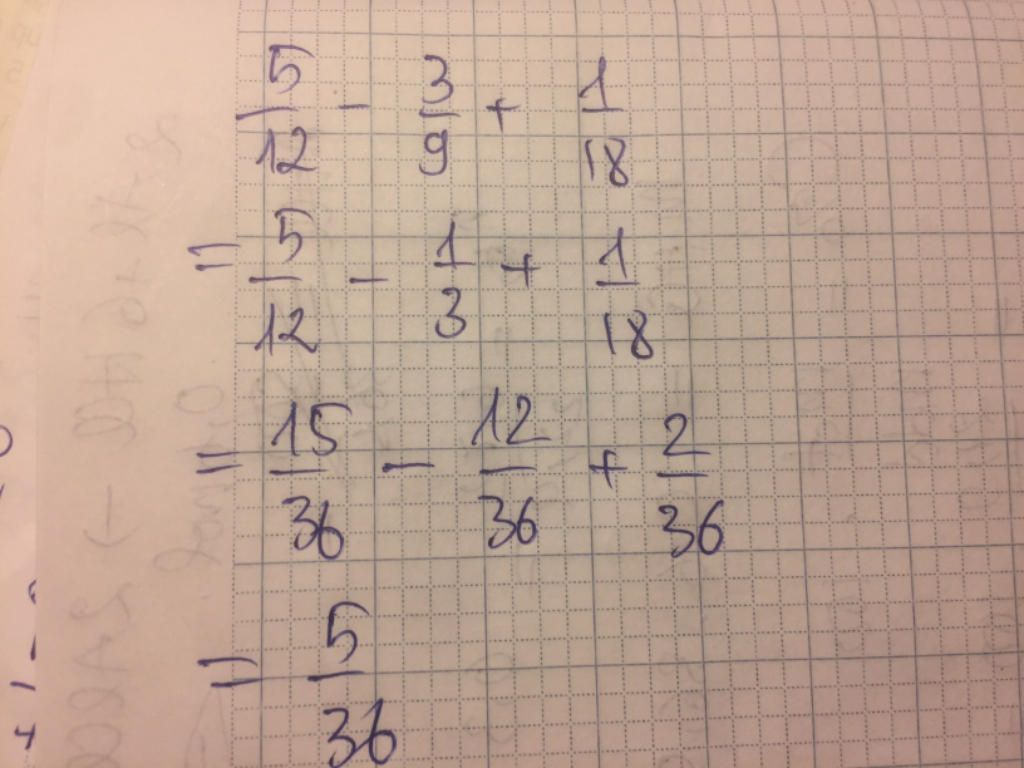 5/12 - 3/9 + 1/18
= 5/12 - 1/3 + 1/18
= 15/36 - 12/36 + 2/36
= 5/36